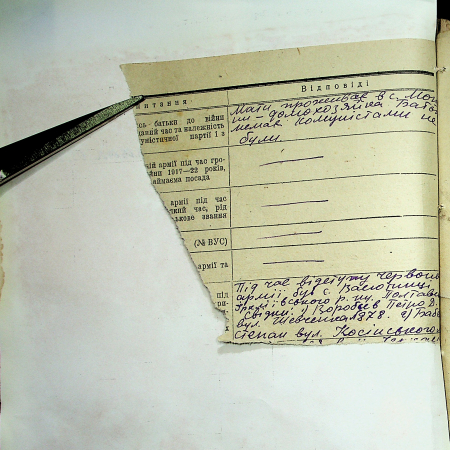 итання
Відповіді
ись батьки до війни
даний час та належність
уністичної партії і з
Мати проживає в с. Мо
ни – домохозяйка Бать
немає комуністами не
були
ькій армії під час гро-
ійни 1917—22 років,
займаєма посада
армії під час
який час, рід
ькове звання
(№ ВУС)
армії та
Під час відступу червоно
армії був с. Василівці
ського р-ну. Полтавс
Свідки: 1) Воробйов Петро В.
вул. Шевченка 1878. 2) Баб
Степан вул. Косінського